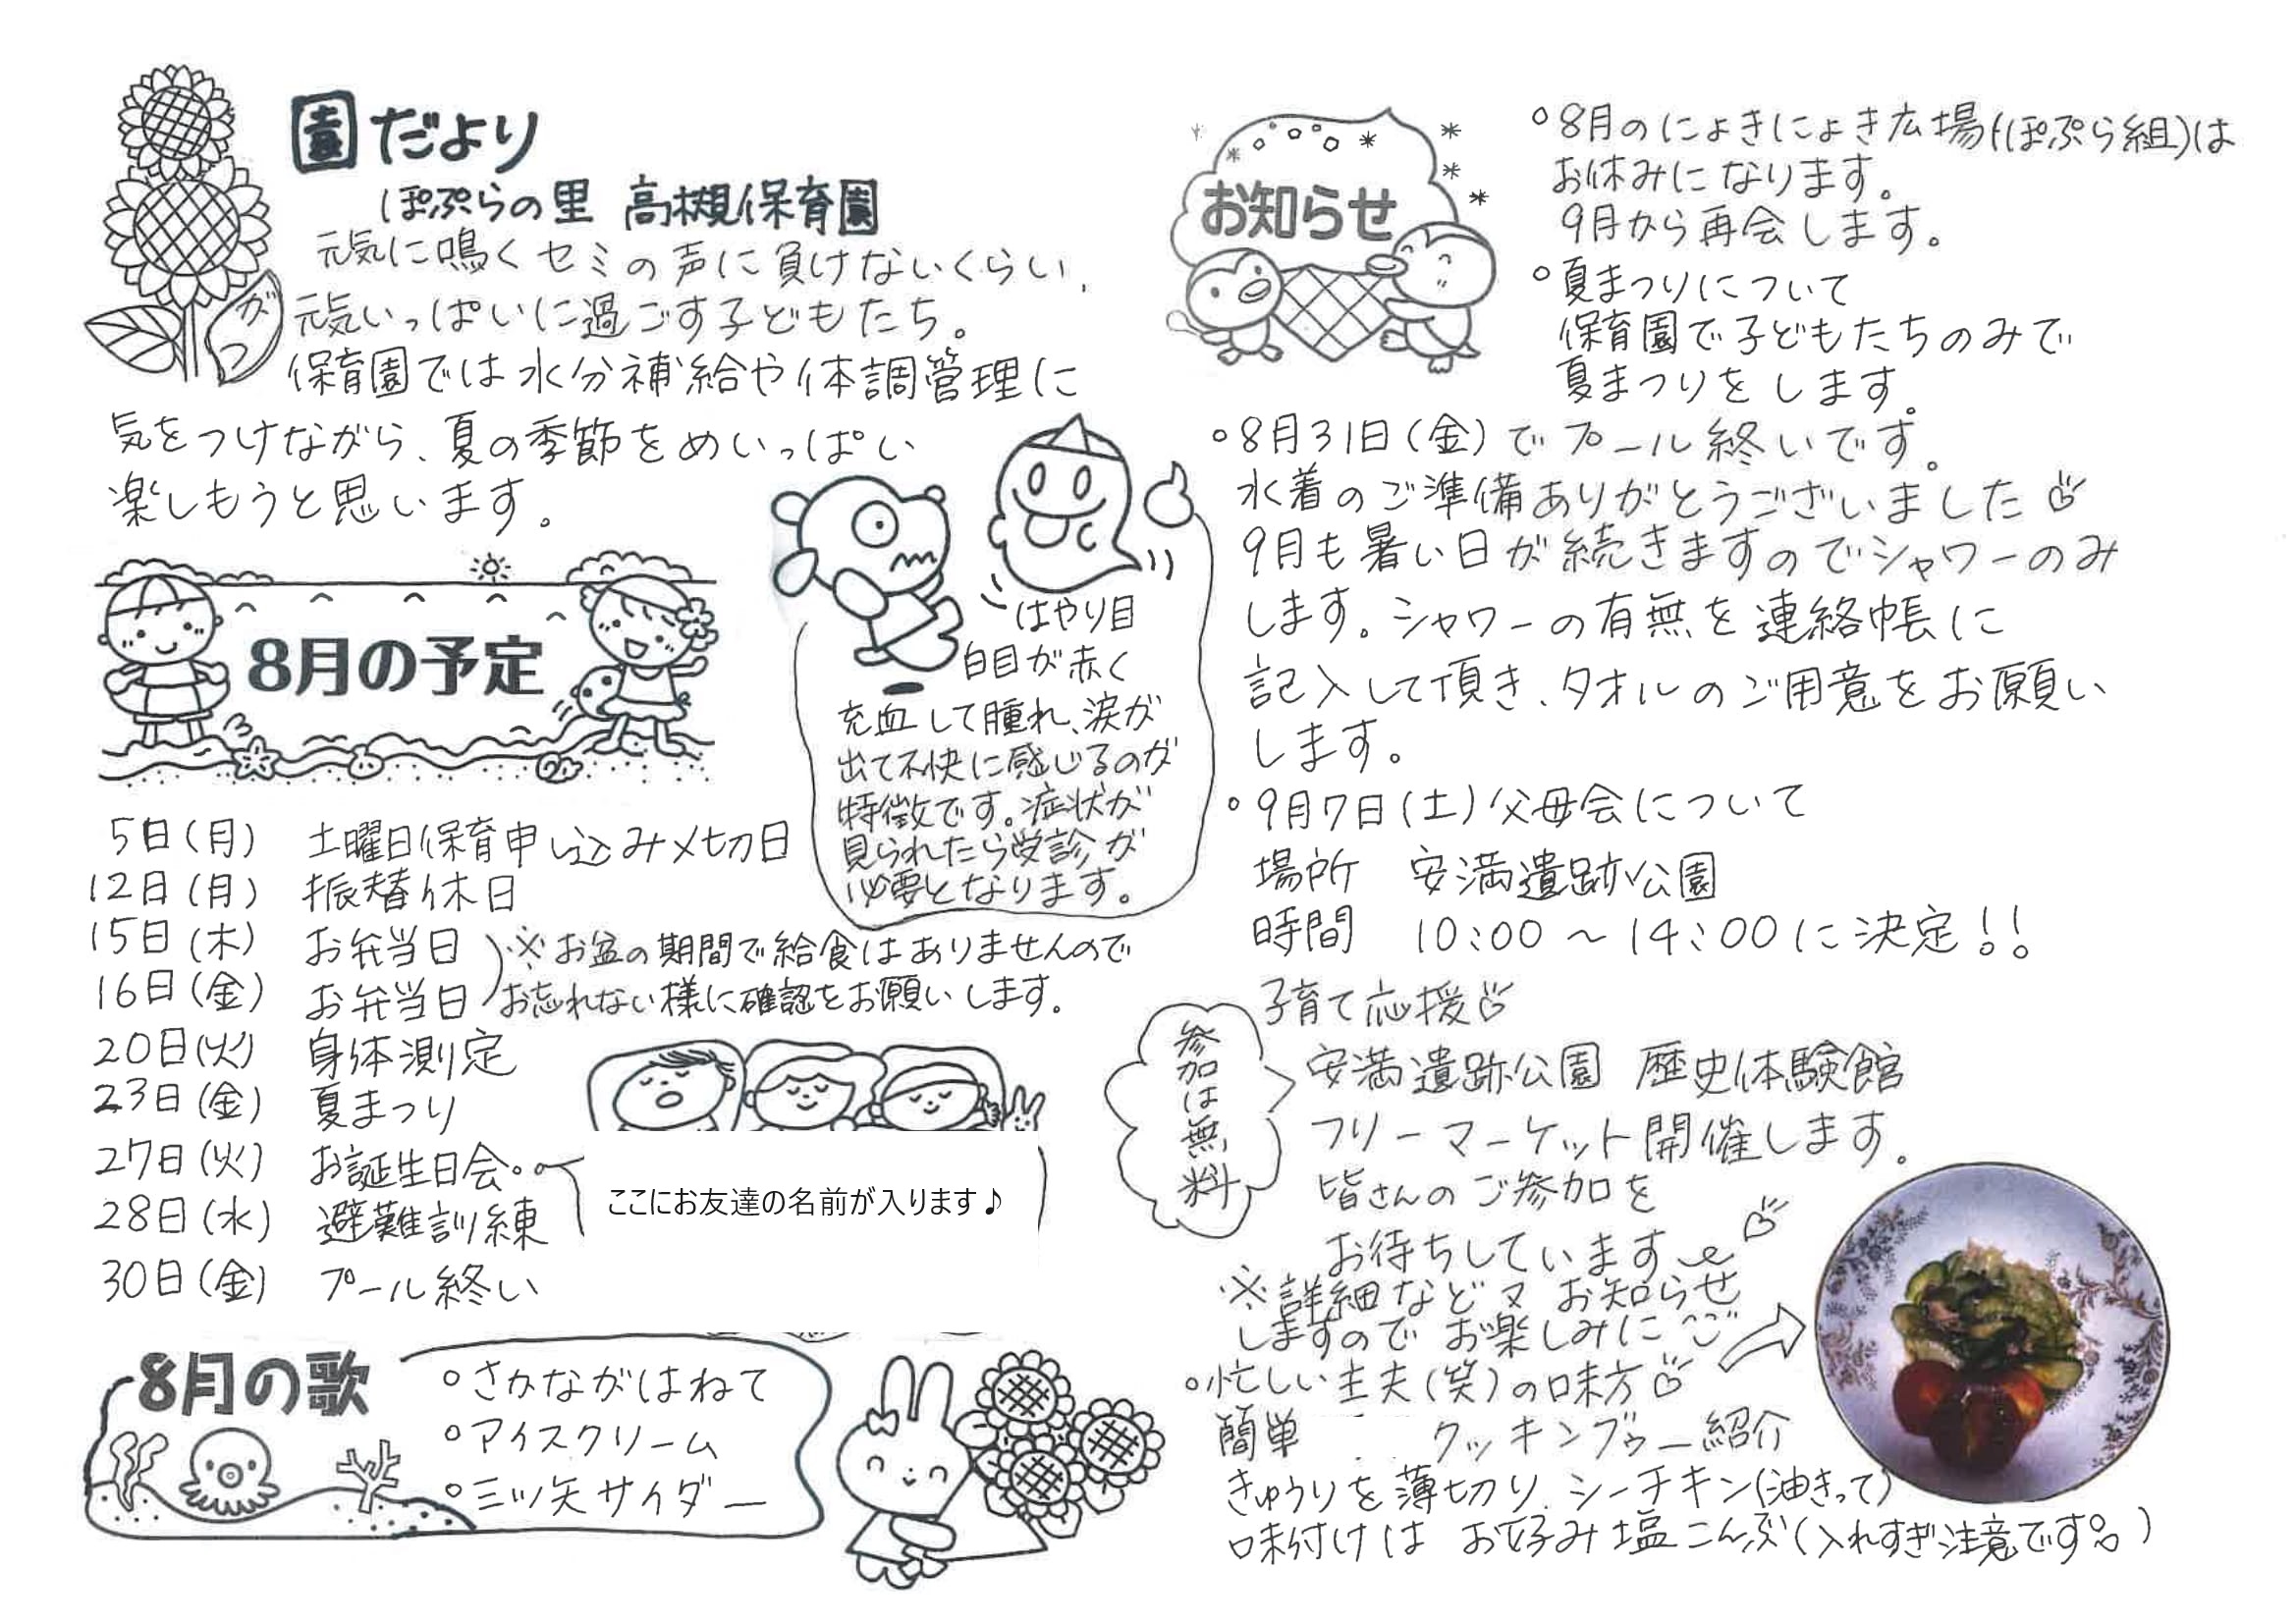 園だより
ぽぷらの里 高槻保育園
8がつ
元気に鳴くセミの声に負けないくらい、
元気いっぱいに過ごす子どもたち。
保育園では水分補給や体調管理に
気をつけながら、夏の季節をめいっぱい
楽しもうと思います。
8月の予定
5日(月) 土曜日保育申し込み〆切日
12日(月) 振替休日
15日(木) お弁当日
16日(金) お弁当日
※お盆の期間で給食はありませんので
お忘れない様に確認をお願いします。
20日(火) 身体測定
23日(金) 夏まつり
27日(火) お誕生日会
ここにお友達の名前が入ります♪
28日(水) 避難訓練
30日(金) プール終い
はやり目
白目が赤く
充血して腫れ、涙が
出て不快に感じるのが
特徴です。症状が
見られたら受診が
必要となります。
8月の歌
○さかながはねて
○アイスクリーム
○三ツ矢サイダー
お知らせ
○8月のにょきにょき広場(ぽぷら組)は
お休みになります。
9月から再会します。
○夏まつりについて
保育園で子どもたちのみで
夏まつりをします。
○8月31日(金)でプール終いです。
水着のご準備ありがとうございました
9月も暑い日が続きますのでシャワーのみ
します。シャワーの有無を連絡帳に
記入して頂き、タオルのご用意をお願い
します。
○9月7日(土)父母会について
場所 安満遺跡公園
時間 10:00～14:00に決定!!
子育て応援
参加は無料
安満遺跡公園 歴史体験館
フリーマーケット開催します。
皆さんのご参加を
お待ちしています
※詳細など又お知らせ
しますのでお楽しみに
○忙しい主夫(笑)の味方
簡単 クッキンブゥー紹介
きゅうりを薄切り、シーチキン(油きって)
味付けは お好み塩こんぶ(入れすぎ注意です。)